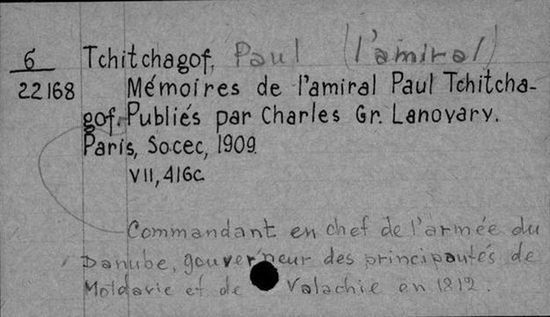 6
22168
Tchitchagof, Paul (l'amiral)
Mémoires de l'amiral Paul Tchitcha-
gof. Publiés par Charles Gr. Lanovary.
Paris, Socec, 1909.
VII, 416c.
Commandant en chef de l'armée du
Danube, gouverneur des principautés de
Moldavie et de Valachie en 1812.